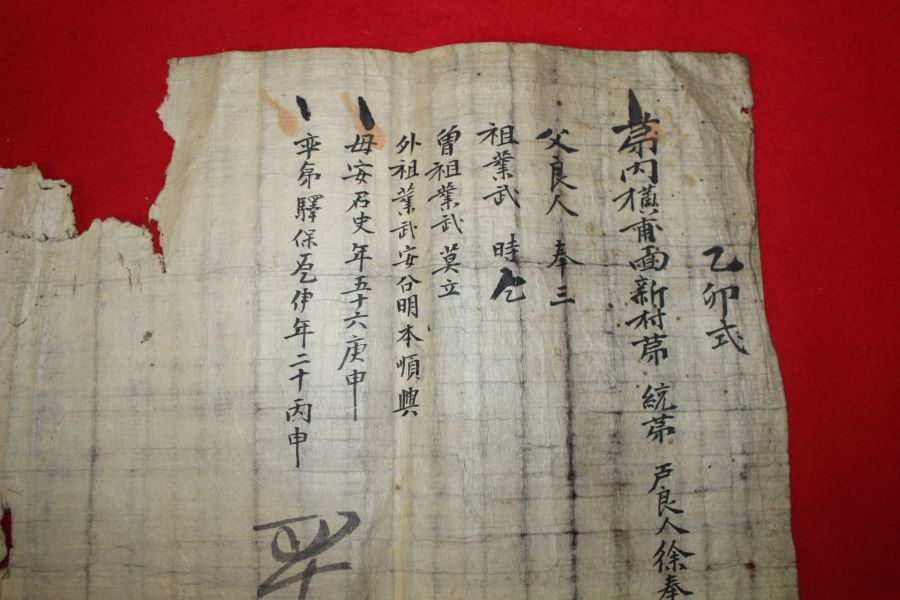 乙卯式
第內橫甫面新村第 統第 戶良人徐奉
父良人 奉三
祖業武 時
曾祖業武 莫立
外祖業武安 明本順興
母安召史年五十六庚申
率弟驛保 年二十丙申